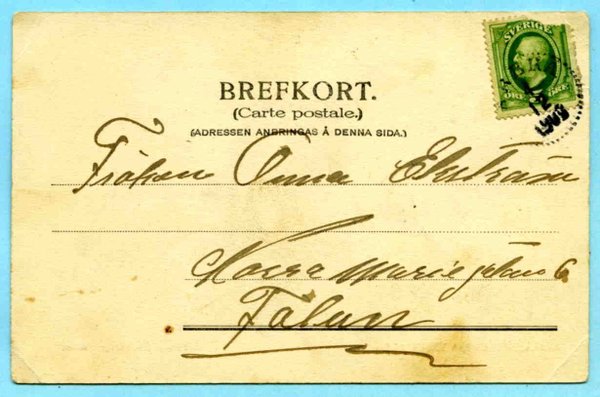 SVERIGE
BREFKORT.
(Carte postale.)
(ADRESSEN ANBRINGAS Å DENNA SIDA.)
Fröken Anna Ekström
Norra Mariegatan 6
Falun